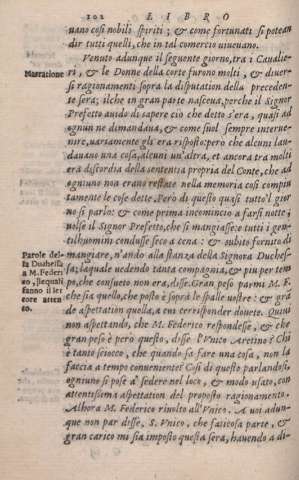 102 LIBRO
nano così nobili spiriti; & come fortunati si potean
dir tutti quelli, che in tal comercio uiueuano.
Venuto adunque il seguente giorno, tra i Caualie-
Narratione
ri, & le Donne della corte furono molti, & diuer-
si ragionamenti sopra la disputation della preceden-
te sera; ilche in gran parte nasceua, perche il Signor
Prefetto auido di sapere ciò che detto s'era, quasi ad
ognun ne dimandaua, & come suol sempre interue-
nire, uariamente gli era risposto: pero che alcuni lau-
dauano una cosa, alcuni un'altra, et ancora tra molti
era discordia della sententia propria del Conte, che ad
ogniuno non erano restate nella memoria così compiu
tamente le cose dette. Però di questo quasi tutto'l gior
no si parlò: & come prima incominciò a farsi notte;
uolse il Signor Prefetto, che si mangiasse: & tutti i gen-
tilhuomini condusse seco a cena: & subito fornito di
Parole del-
la Duchessa
a M. Federi
co, llequali
fanno il let
tore atten
to.
mangiare, n'andò alla stanza della Signora Duches-
sa; laquale uedendo tanta compagnia, & piu per tem
po, che consueto non era, disse. Gran peso parmi M. F.
che sia quello, che posto è sopra le spalle uostre: & grã
de aspettation quella, a cui corresponder douete. Quiui
non aspettando, che M. Federico respondesse, & che
gran peso è però questo, disse l'Vnico Aretino? Chi
è tanto sciocco, che quando sa fare una cosa, non la
faccia a tempo conueniente? Così di questo parlandosi,
ogniuno si pose a' sedere nel loco, & modo usato, con
attentissima aspettation del proposto ragionamento.
Alhora M. Federico riuolto all'Vnico. A uoi adun-
que non par disse, S. Vnico, che faticosa parte, &
gran carico mi sia imposto questa sera, hauendo a di-